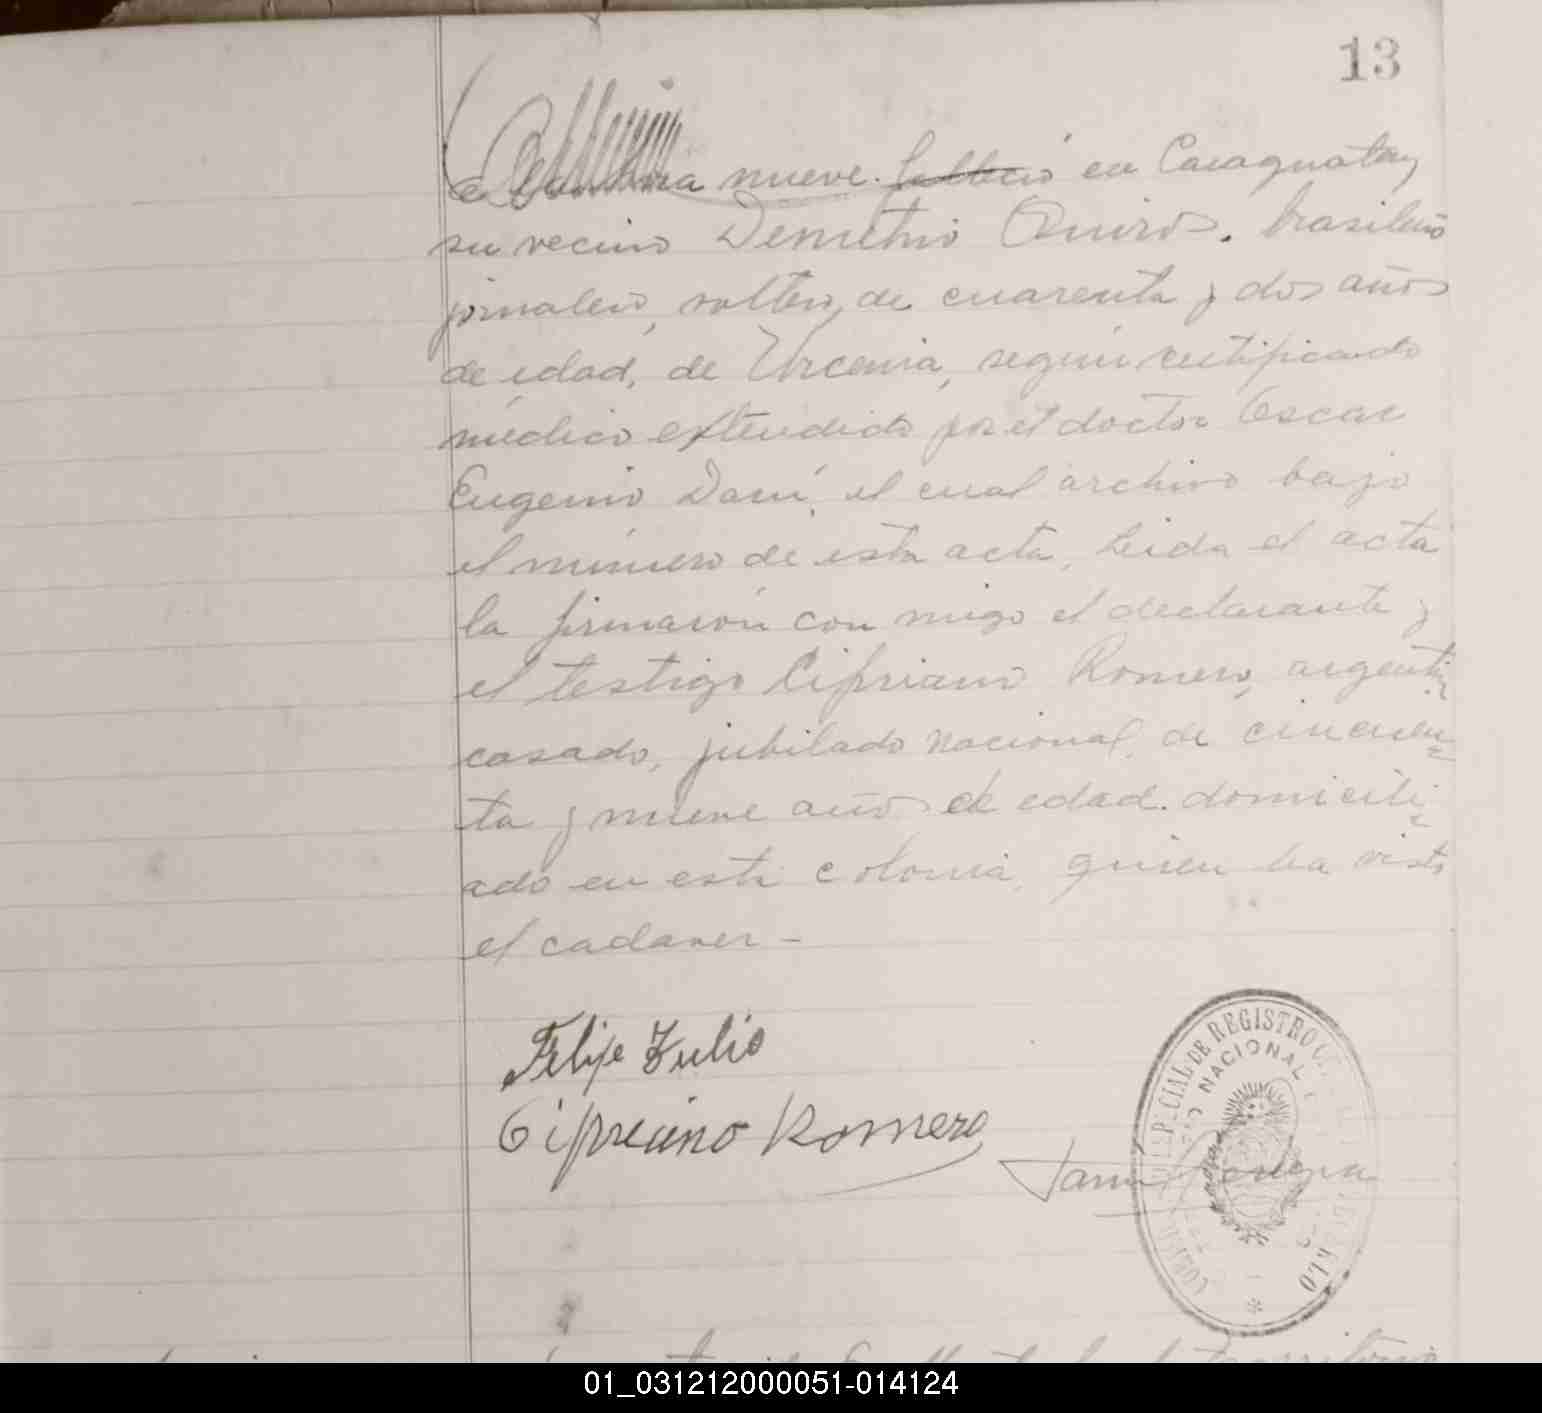 13
a nueve. falleció en Caraguatay
su vecino Demetrio Quirós. brasileño
jornalero, soltero, de cuarenta y dos años
de edad, de Urcemia, según certificado
médico extendido por el doctor Oscar
Eugenio Darú, el cual archivo bajo
el número de esta acta, Leida el acta
la firmaron con migo el declarante y
el testigo Cipriano Romero, argenti
casado, jubilado nacional, de cincuen=
ta y nueve años de edad. domicili=
ado en esta colonia, quien ha visto
el cadaver -
Felipe Julio
Cipriano Romero
DE REGISTRO
NACIONAL
01_031212000051-014124